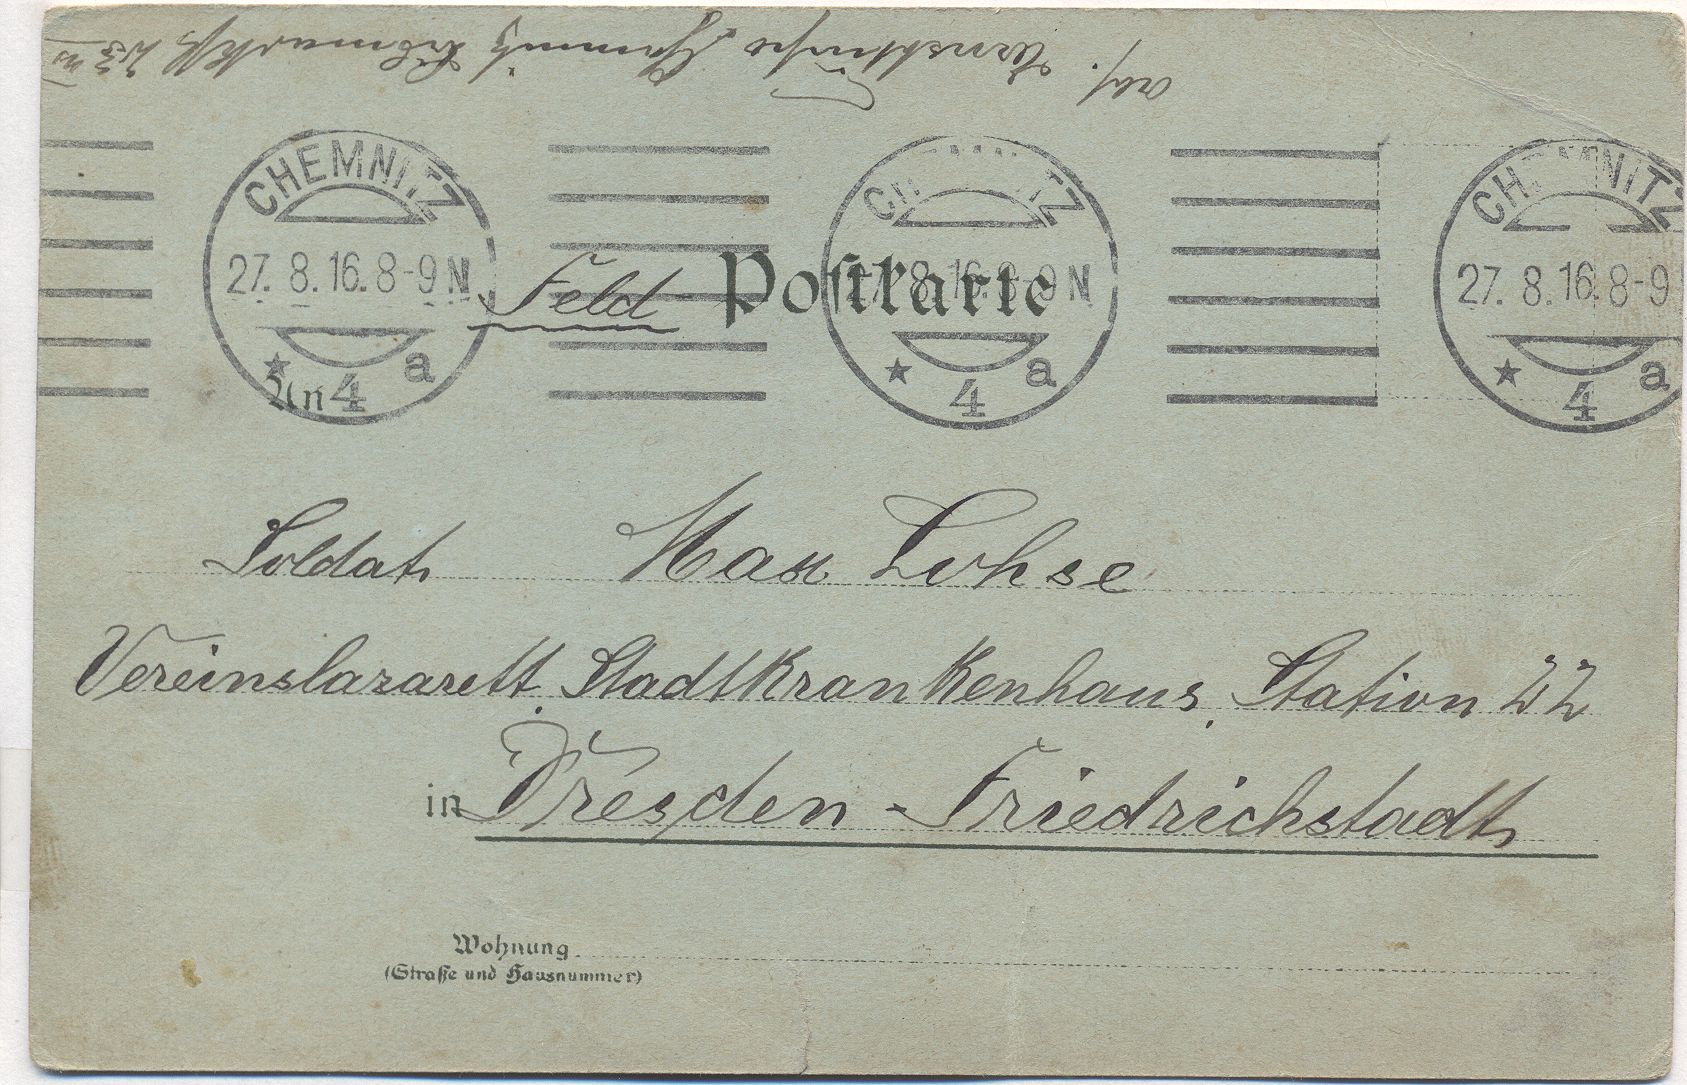 Abs.
CHEMNITZ
27. 8. 16. 8-9 N
* 4 a
CHEMNITZ
27. 8. 16. 8-9 N
* 4 a
CHEMNITZ
27. 8. 16. 8-9
* 4 a
Feld Postkarte
An
Soldat Max Lohse
Vereinslazarett Stadtkrankenhaus, Station 22
in Dresden-Friedrichstadt
Wohnung
(Straße und Hausnummer)